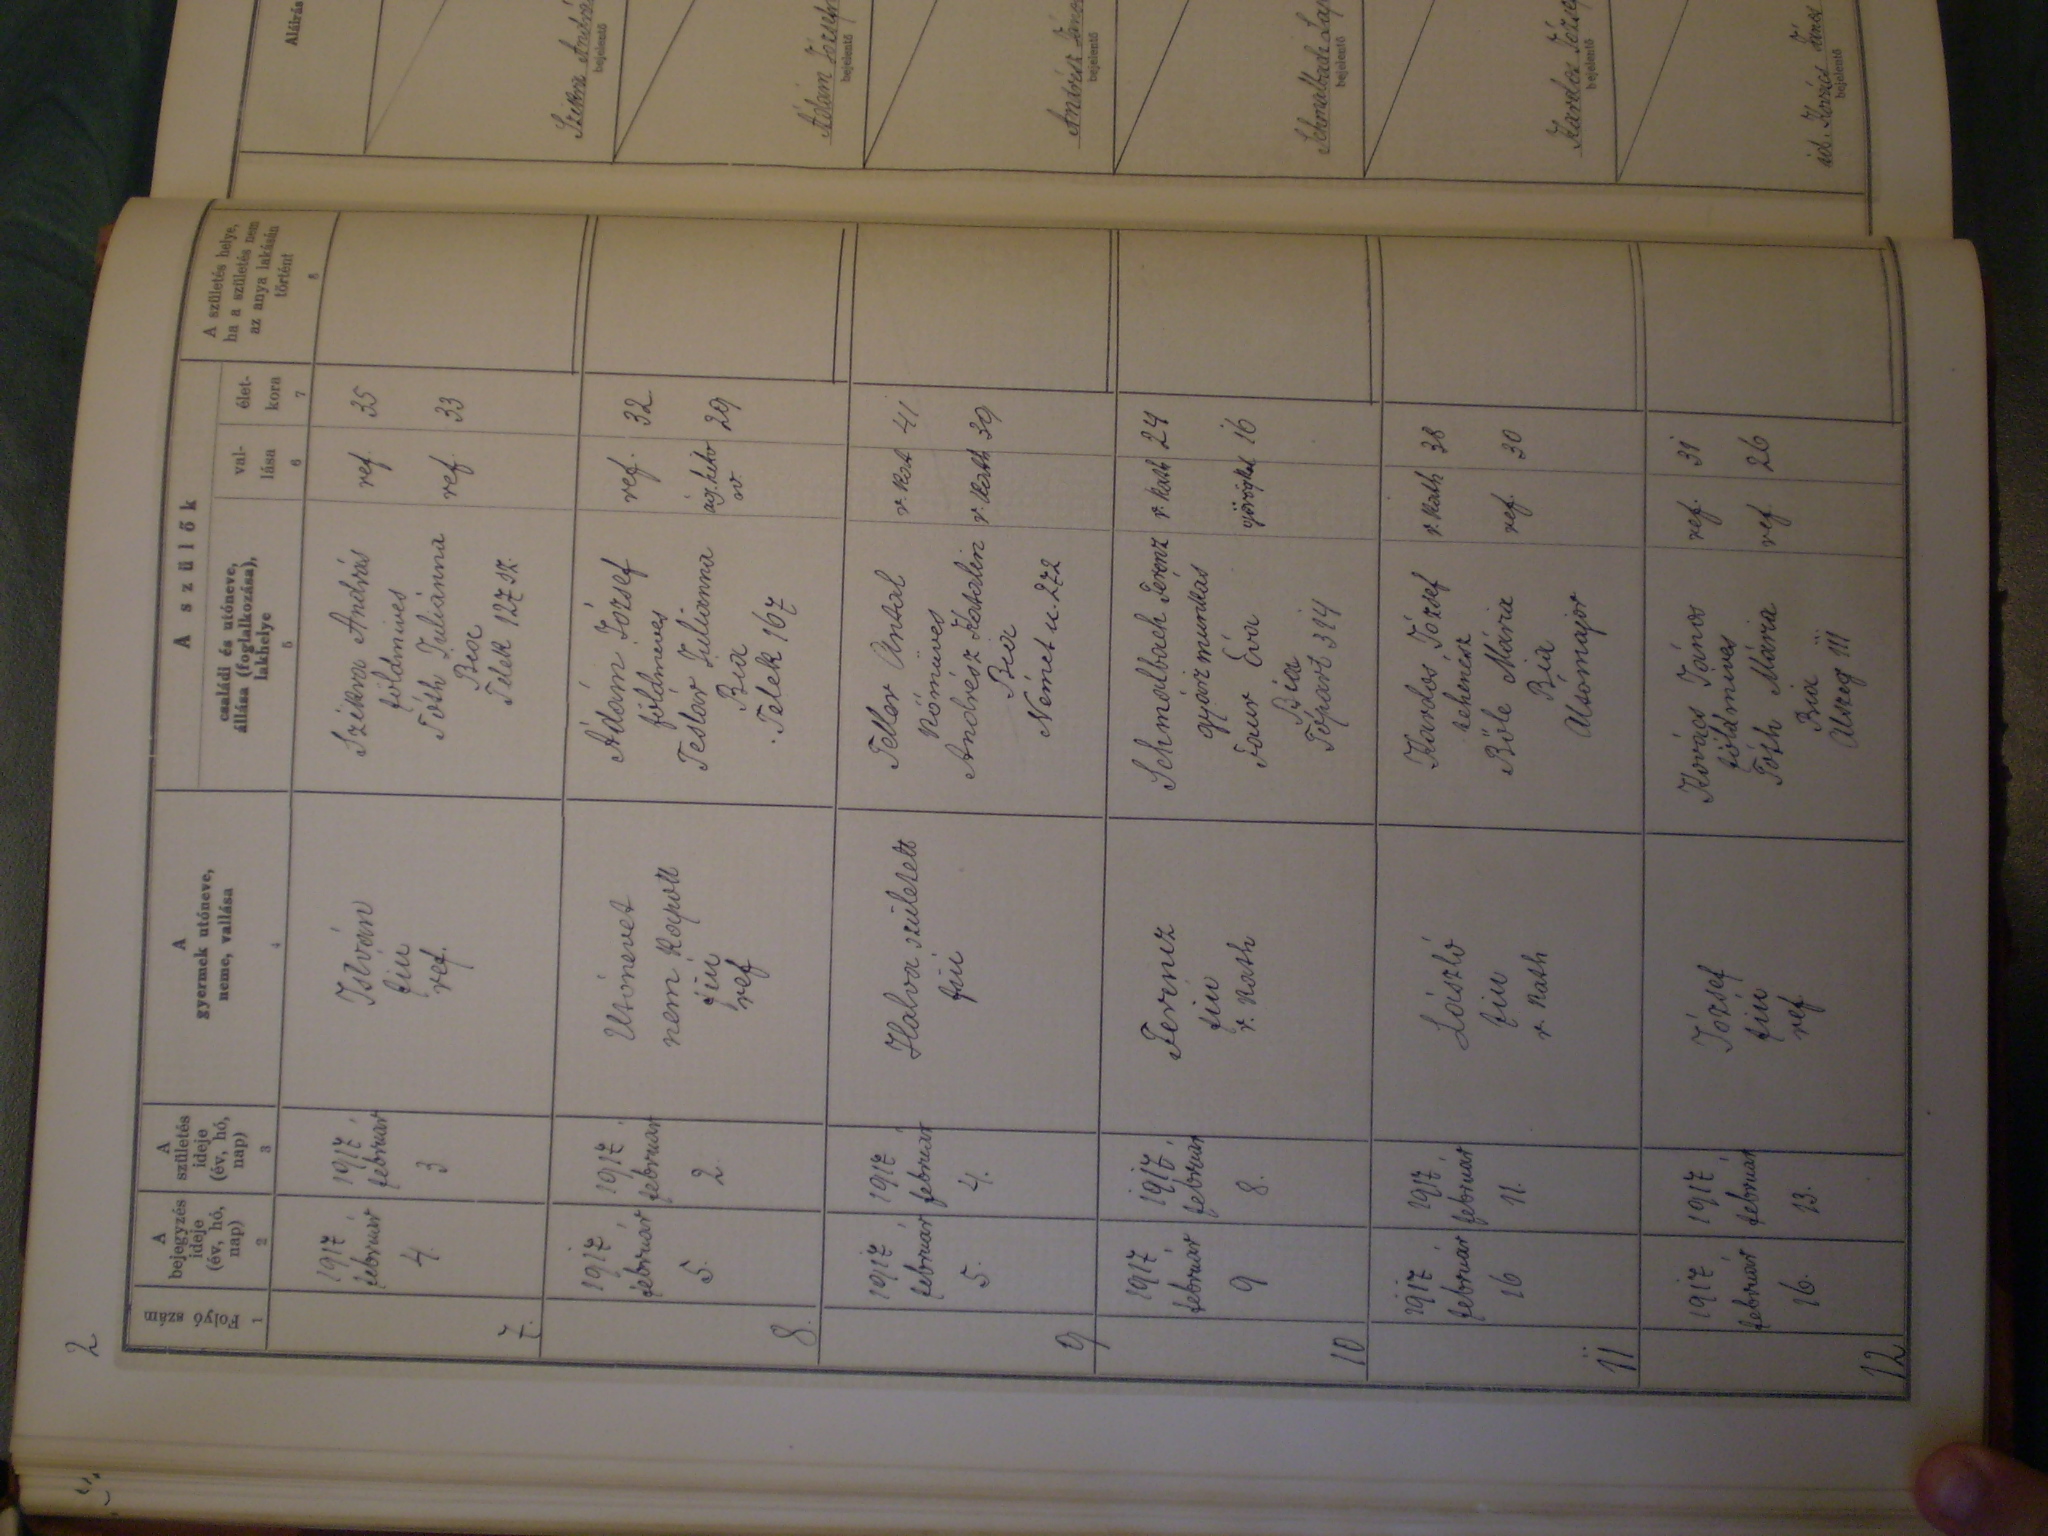 2
A bejegyzés ideje (év, hó, nap)
A születés ideje (év, hó, nap)
A gyermek utóneve, neme, vallása
A szülők
családi és utóneve, állása (foglalkozása), lakhelye
val-
lása
élet-
kora
A születés helye,
ha a születés nem
az anya lakásán
történt
Folyó szám
1
2
3
4
5
6
7
8
7.
1917
február
4.
1917
február
3
István
fiu
ref.
Szikra András
földmives
Tóth Juliánna
Bia
Telek 127 sz.
ref.
ref.
35
33
8.
1917
február
5.
1917
február
2.
Utónevet
nem kapott
fiú
ref
Ádám József
földmives
Julianna
Bia
Telek 167
ref.
32
29
9
1917
február
5.
1917
február
4.
Halva született
fiú
Teller Antal
kőmüves
Katalin
Bia
Német u. 272
r. kath
r. kath
41
39
10
1917
február
9
1917.
február
8.
Ferencz
fiu
r. kath
Schmalbach Ferencz
gyári munkás
Éva
Bia
Tópart 314
r. kath
24
16
11
1917
február
16
1917
február
11.
László
fiu
r. kath
Kardos József
tehenész
Bőle Mária
Bia
Alsómajor
r. kath
ref.
38
30
12
1917
február
16.
1917
február
13.
József
fiu
ref
Kovács János
földmives
Tóth Mária
Bia
Alszeg 111
ref.
ref
31
26
Aláírás
Szikra
bejelentő
Ádám József
bejelentő
bejelentő
Schmalbach
bejelentő
Kardos József
bejelentő
id. Kovács János
bejelentő